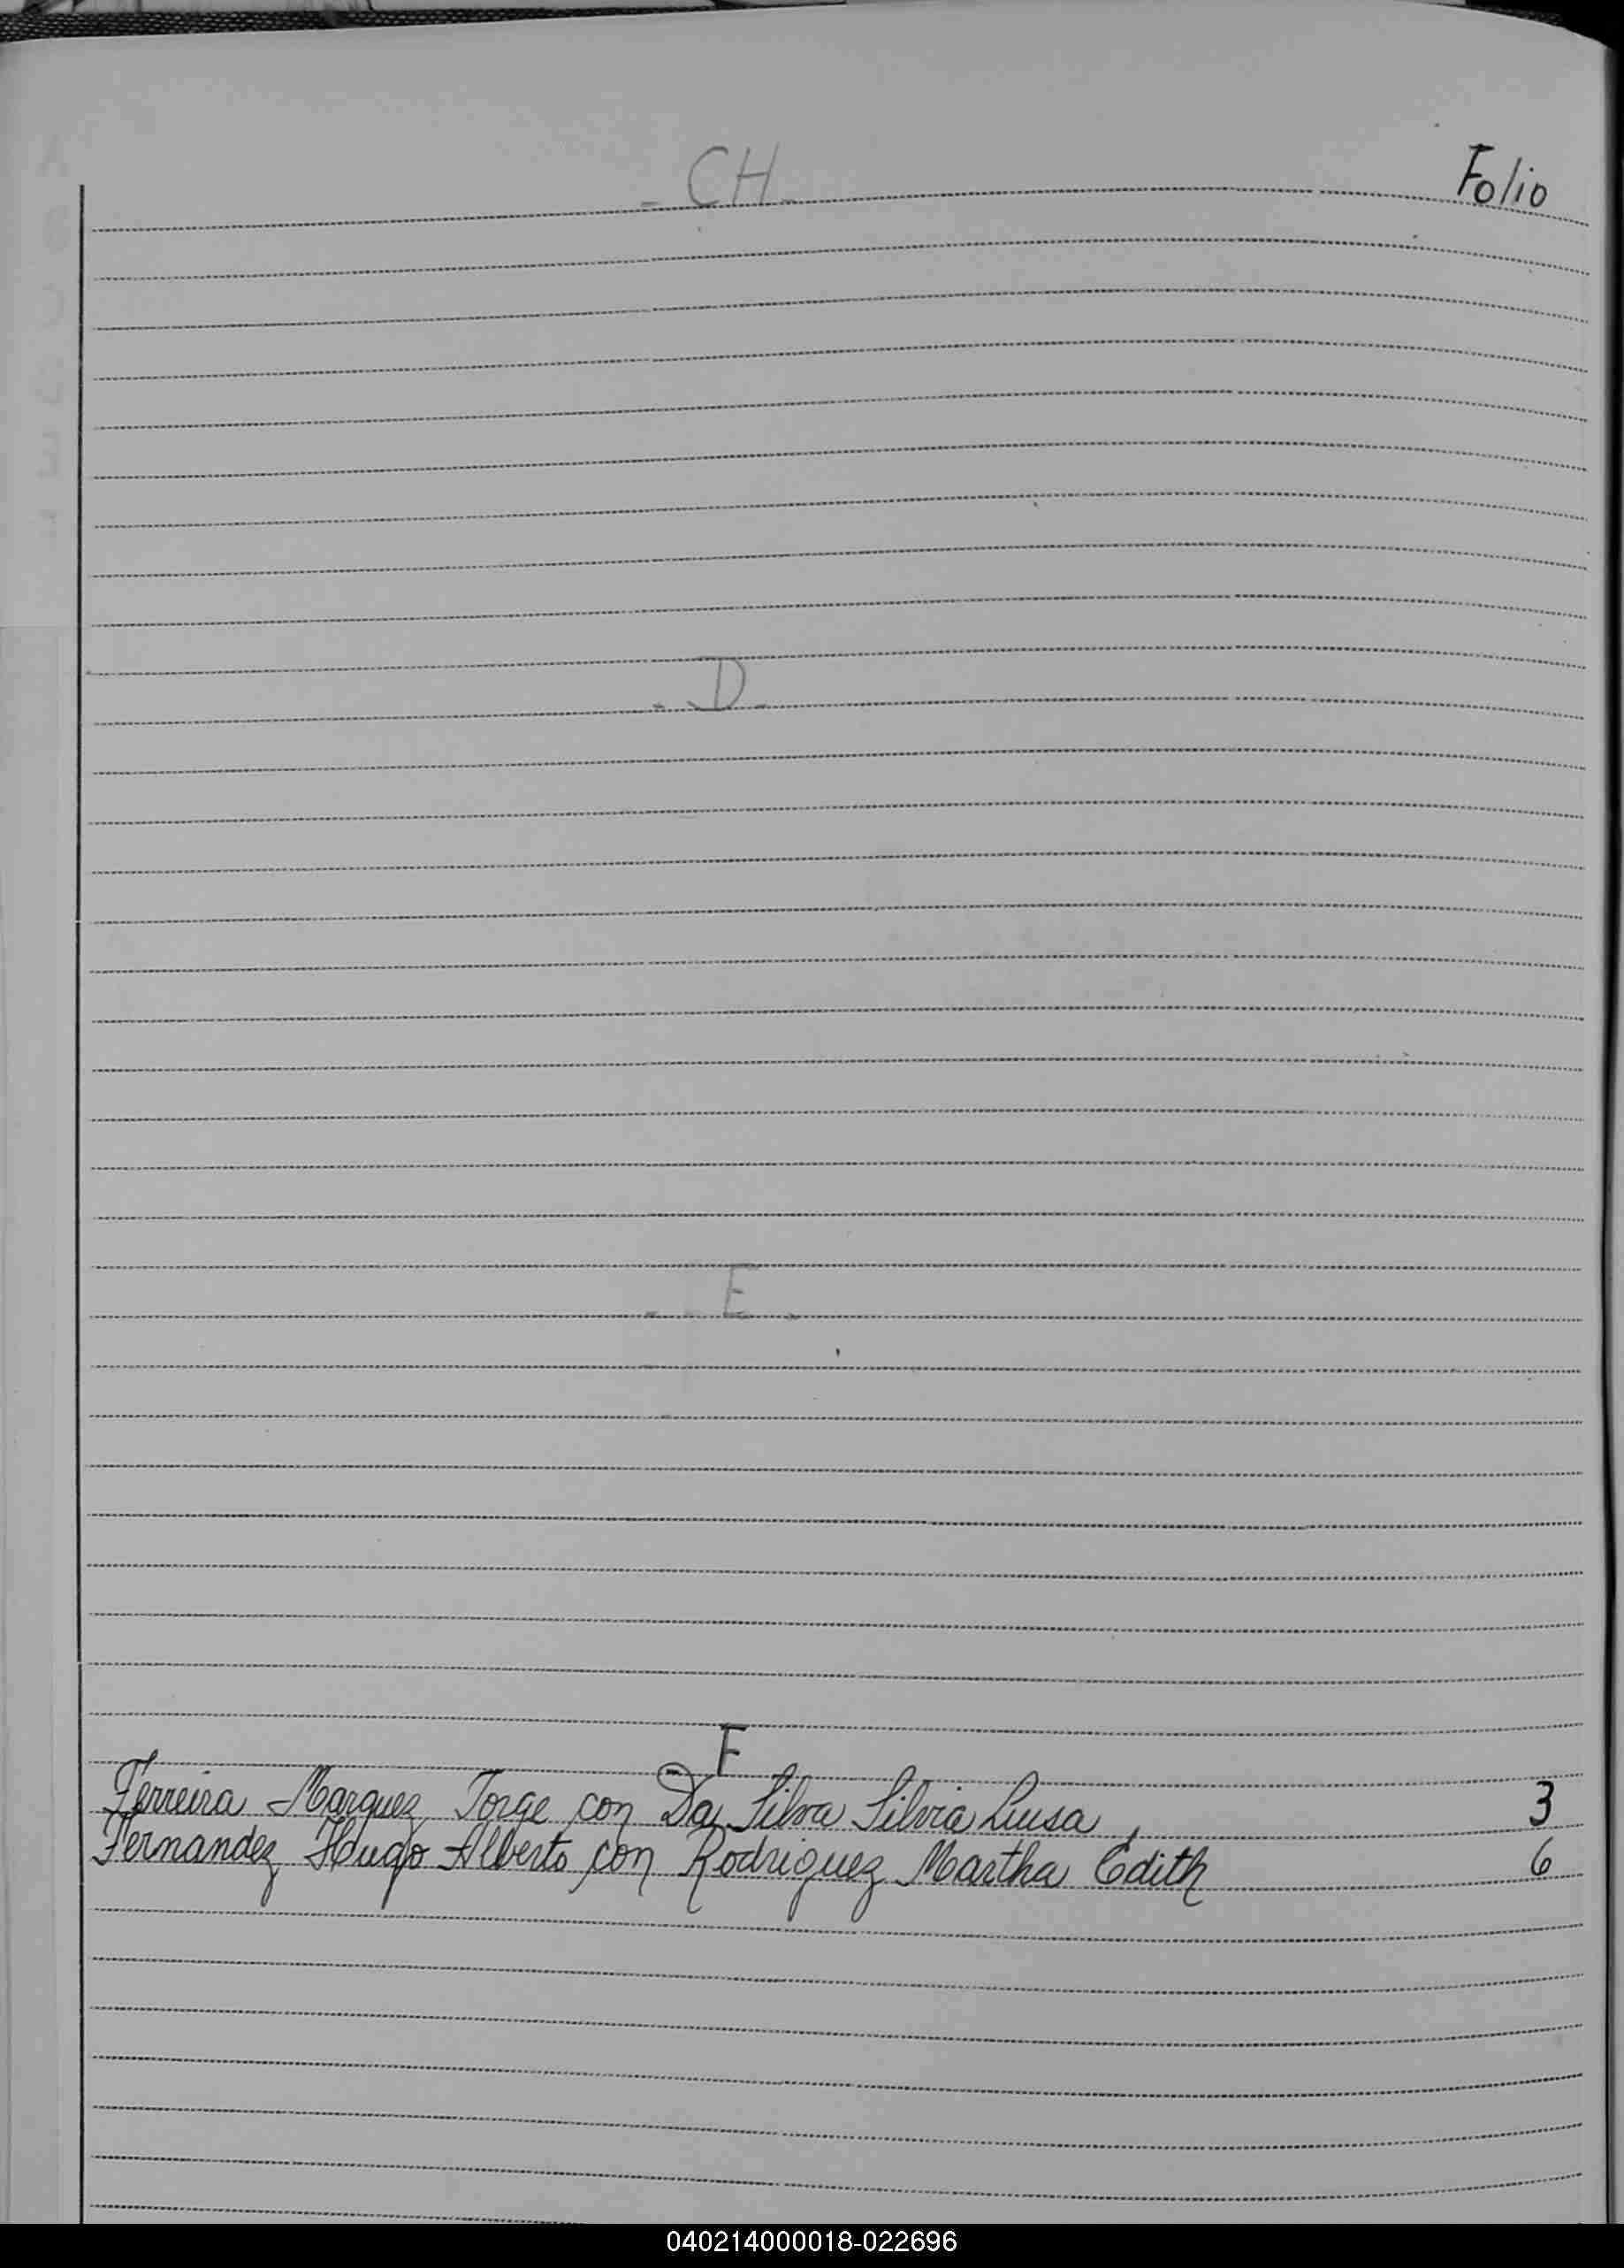 - CH - Folio
- D -
- E -
- F
Ferreira Marquez Jorge con Da Silva Silvia Luisa 3
Fernandez Hugo Alberto con Rodriguez Martha Édith 6
040214000018-022696